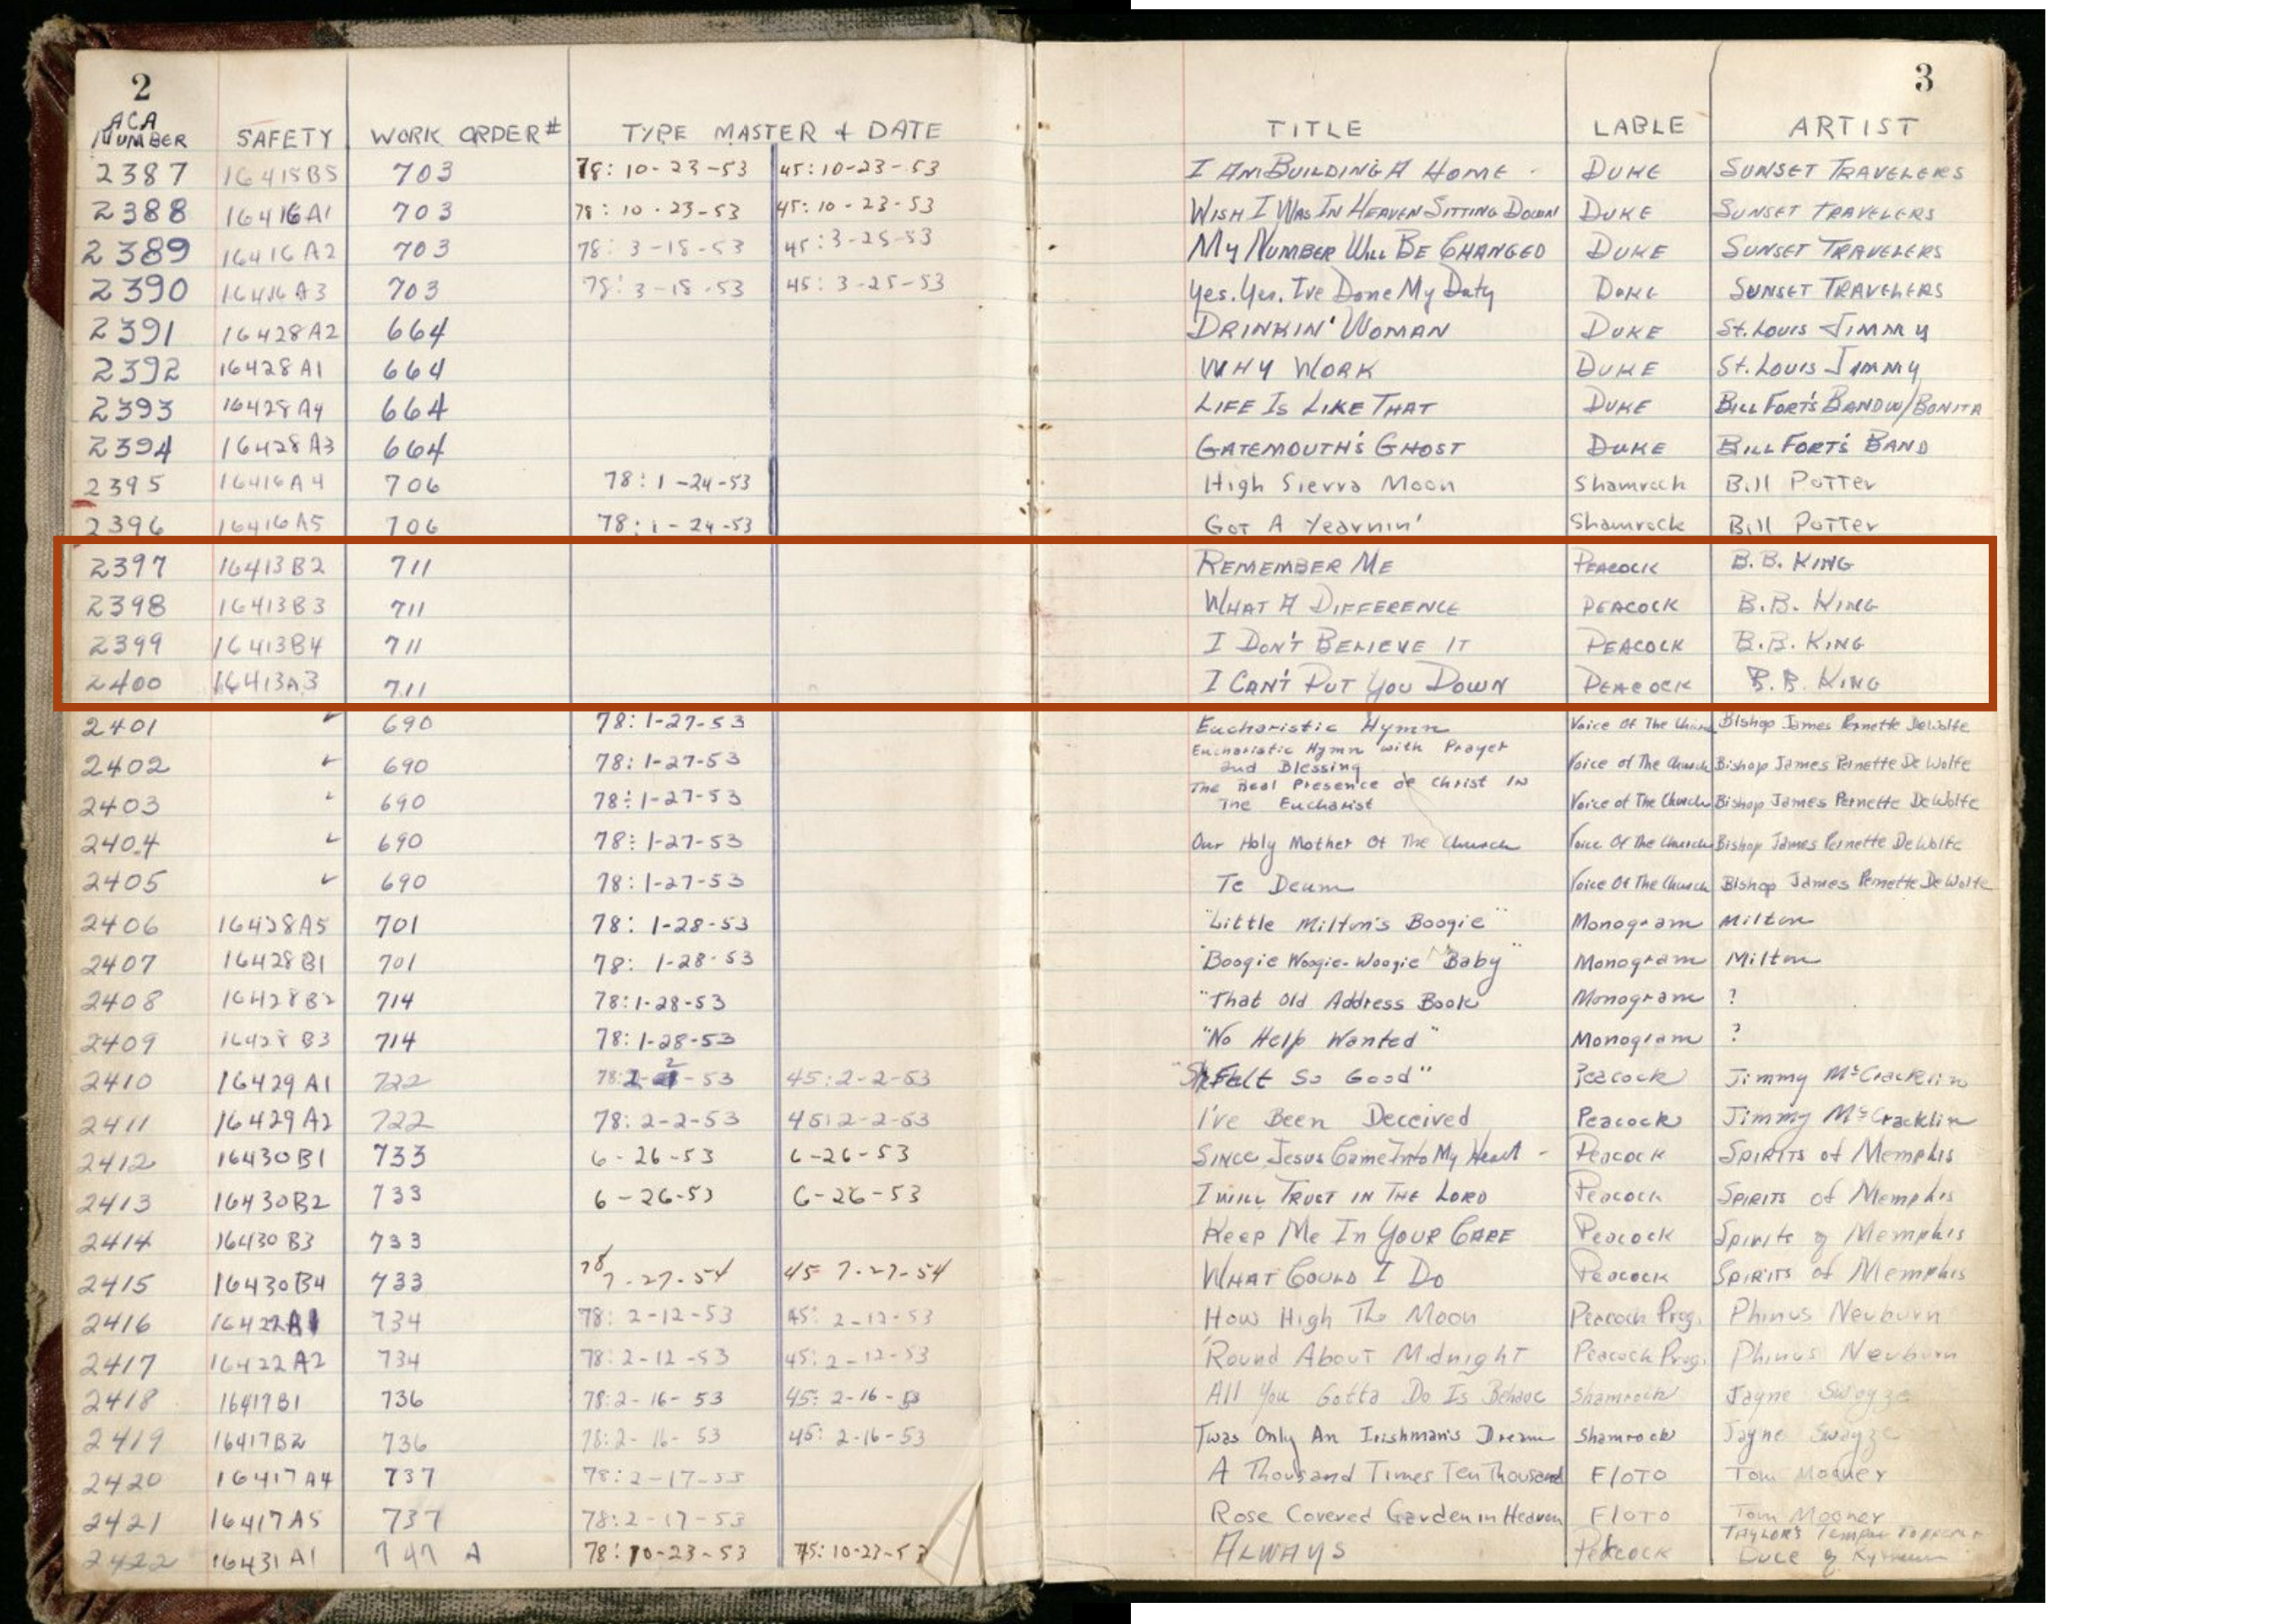 2
3
ACA NUMBER SAFETY WORK ORDER# TYPE MASTER + DATE TITLE LABLE ARTIST
2387 16415B5 703 78: 10-23-53 45: 10-23-53 I AM BUILDING A HOME - DUKE SUNSET TRAVELERS
2388 16416A1 703 78: 10-23-53 45: 10-23-53 WISH I WAS IN HEAVEN SITTING DOWN DUKE SUNSET TRAVELERS
2389 16416A2 703 78: 3-18-53 45: 3-25-53 MY NUMBER WILL BE CHANGED DUKE SUNSET TRAVELERS
2390 16416A3 703 78: 3-18-53 45: 3-25-53 Yes, Yes, I've Done My Duty DUKE SUNSET TRAVELERS
2391 16428A2 664 DRINKIN' WOMAN DUKE St. Louis Jimmy
2392 16428A1 664 WHY WORK DUKE St. Louis Jimmy
2393 16428A4 664 LIFE IS LIKE THAT DUKE BILL FORT'S BAND W/BONITA
2394 16428A3 664 GATEMOUTH'S GHOST DUKE BILL FORT'S BAND
2395 16416A4 706 78: 1-24-53 High Sierra Moon Shamrock Bill Potter
2396 16416A5 706 78: 1-24-53 Got A Yearnin' Shamrock Bill Potter
2397 16413B2 711 REMEMBER ME PEACOCK B.B. KING
2398 16413B3 711 WHAT A DIFFERENCE PEACOCK B.B. KING
2399 16413B4 711 I DON'T BELIEVE IT PEACOCK B.B. KING
2400 16413A3 711 I CAN'T PUT YOU DOWN PEACOCK B.B. KING
2401 ✓ 690 78: 1-27-53 Eucharistic Hymn Voice Of The Church Bishop James Pernette DeWolfe
2402 ✓ 690 78: 1-27-53 Eucharistic Hymn with Prayer and Blessing Voice of The Church Bishop James Pernette DeWolfe
2403 ✓ 690 78: 1-27-53 The Real Presence of Christ In The Eucharist Voice of The Church Bishop James Pernette DeWolfe
2404 ✓ 690 78: 1-27-53 Our Holy Mother Of The Church Voice Of The Church Bishop James Pernette DeWolfe
2405 ✓ 690 78: 1-27-53 Te Deum Voice Of The Church Bishop James Pernette DeWolfe
2406 16428A5 701 78: 1-28-53 "Little Milton's Boogie" Monogram Milton
2407 16428B1 701 78: 1-28-53 "Boogie Woogie-Woogie Baby" Monogram Milton
2408 16428B2 714 78: 1-28-53 "That Old Address Book Monogram ?
2409 16428B3 714 78: 1-28-53 "No Help Wanted" Monogram ?
2410 16429A1 722 78: 2-2-53 45: 2-2-53 Felt So Good" Peacock Jimmy McCracklin
2411 16429A2 722 78: 2-2-53 45: 2-2-53 I've Been Deceived Peacock Jimmy McCracklin
2412 16430B1 733 6-26-53 6-26-53 SINCE Jesus Came Into My Heart - Peacock SPIRITS of Memphis
2413 16430B2 733 6-26-53 6-26-53 I WILL TRUST IN THE LORD Peacock SPIRITS of Memphis
2414 16430B3 733 KEEP ME IN YOUR CARE Peacock Spirits of Memphis
2415 16430B4 733 78 7-27-54 45 7-27-54 WHAT COULD I DO Peacock SPIRITS of Memphis
2416 16422A1 734 78: 2-12-53 45: 2-12-53 How High The Moon Peacock Prog. Phinus Neuburn
2417 16422A2 734 78: 2-12-53 45: 2-12-53 'Round About Midnight Peacock Prog. Phinus Neuburn
2418 16417B1 736 78: 2-16-53 45: 2-16-53 All You Gotta Do Is Behave Shamrock Jayne Swayze
2419 16417B2 736 78: 2-16-53 45: 2-16-53 Twas Only An Irishman's Dream Shamrock Jayne Swayze
2420 16417A4 737 78: 2-17-53 A Thousand Times Ten Thousand FLOTO Tom Mooner
2421 16417A5 737 78: 2-17-53 Rose Covered Garden in Heaven FLOTO Tom Mooner
2422 16431A1 747 A 78: 10-23-53 45: 10-23-53 ALWAYS Peacock TAYLOR'S